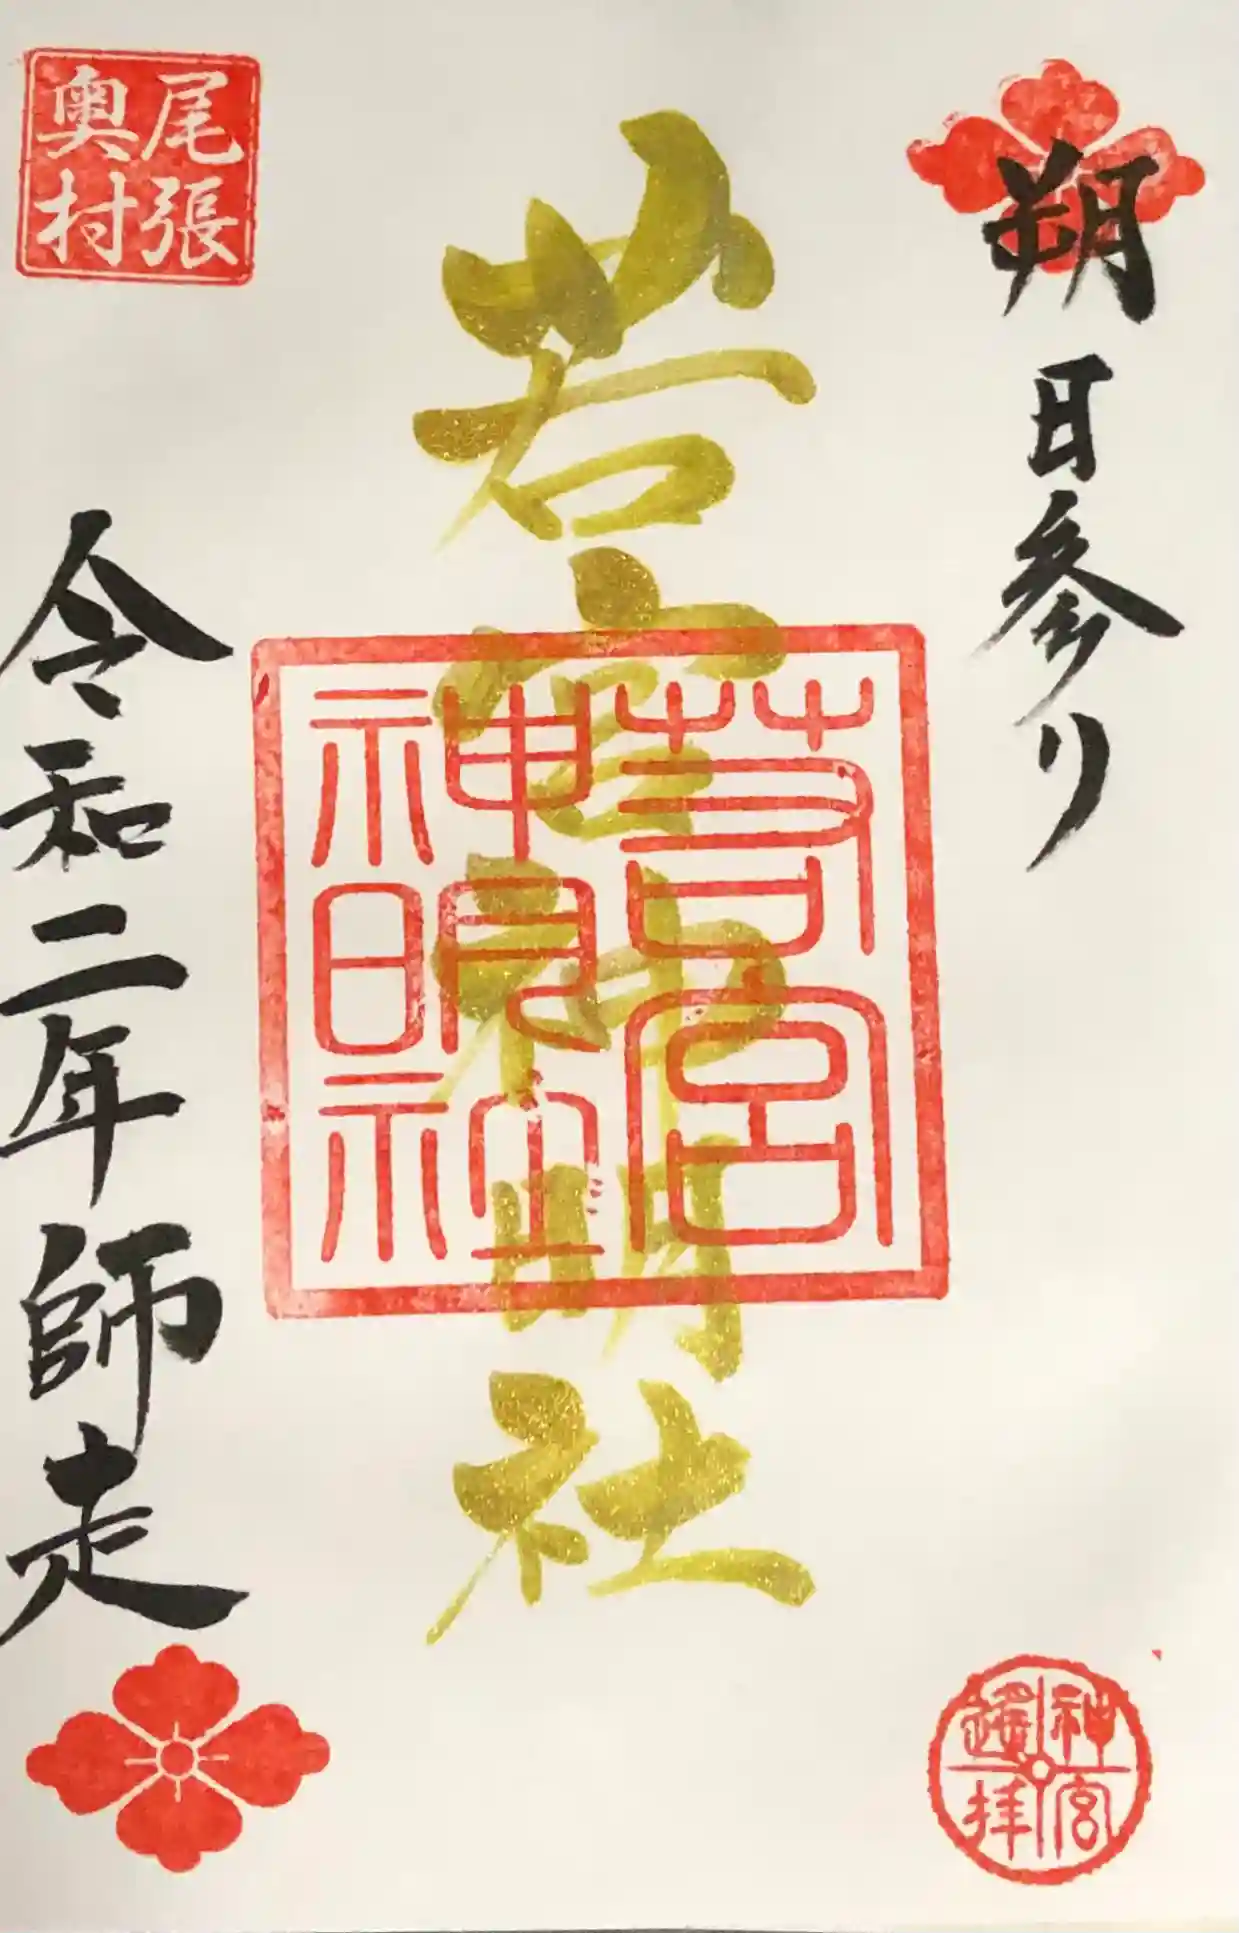 朔日参り
若宮神明社
若宮
神明社
尾張
奥村
令和二年師走
神宮
遥拝